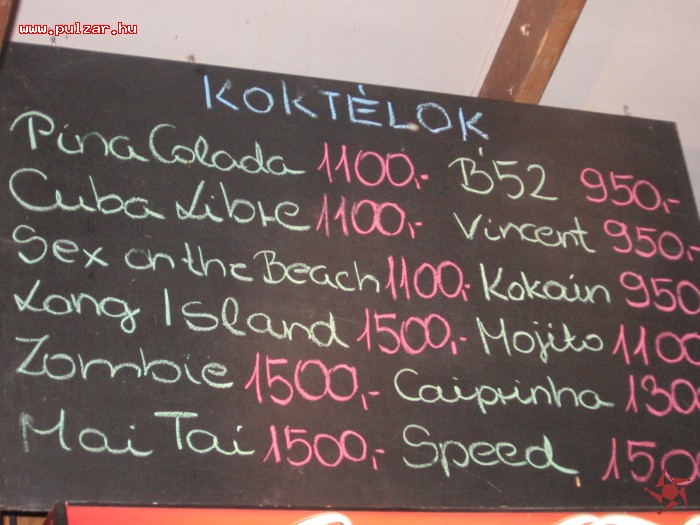 www.pulzar.hu
KOKTÉLOK
Pina Colada 1100,-
Cuba Libre 1100,-
Sex on the Beach 1100,-
Long Island 1500,-
Zombie 1500,-
Mai Tai 1500,-
B52 950,-
Vincent 950,-
Kokain 950
Mojito 1100
Caiprinha 130
Speed 150